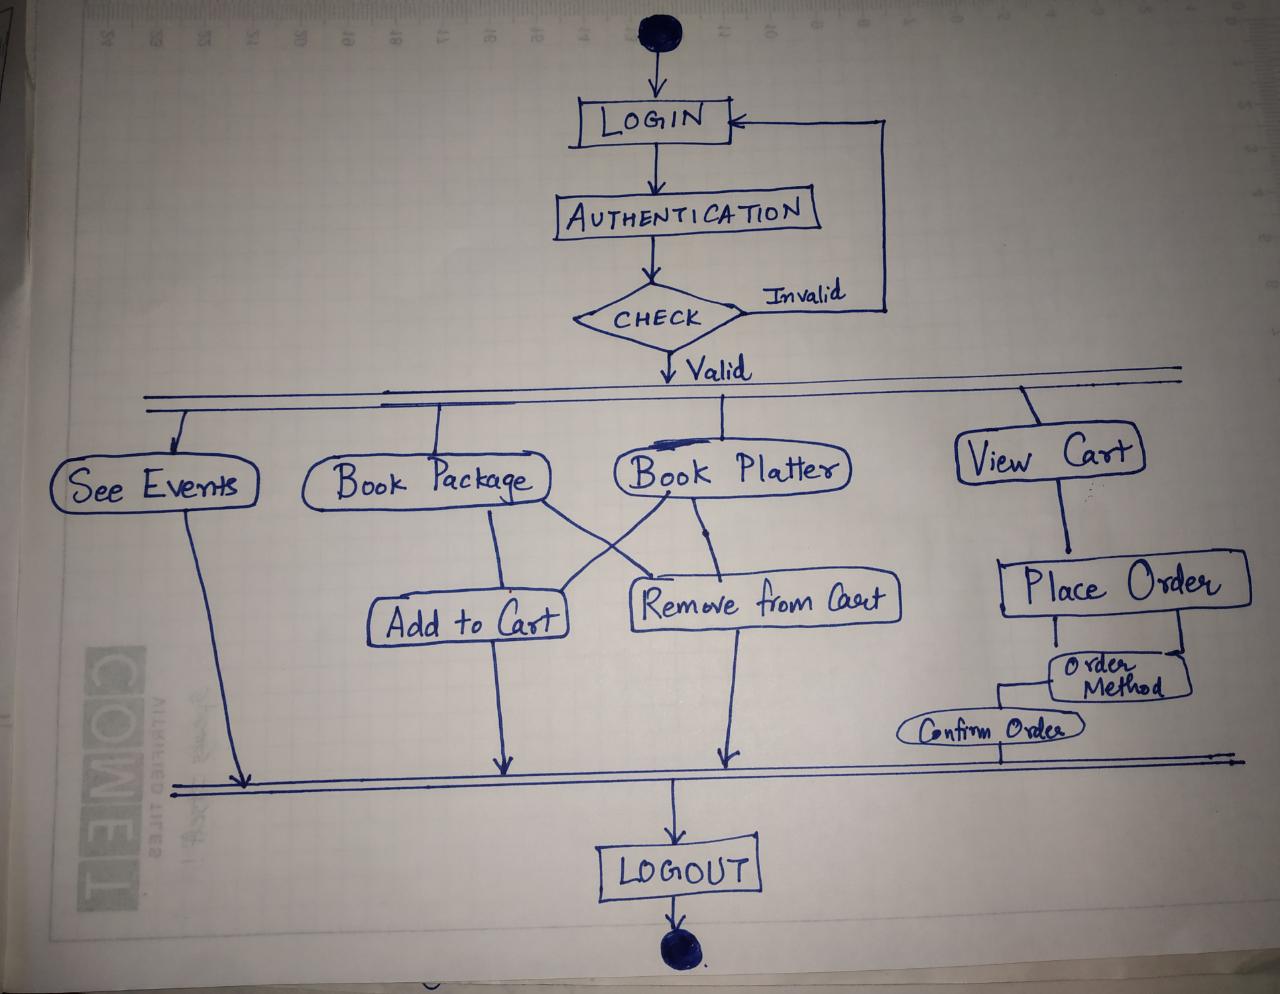 LOGIN
AUTHENTICATION
CHECK
Invalid
Valid
See Events
Book Package
Book Platter
View Cart
Add to Cart
Remove from Cart
Place Order
Order
Method
Confirm Order
LOGOUT
COMET
VITRIFIED TILES